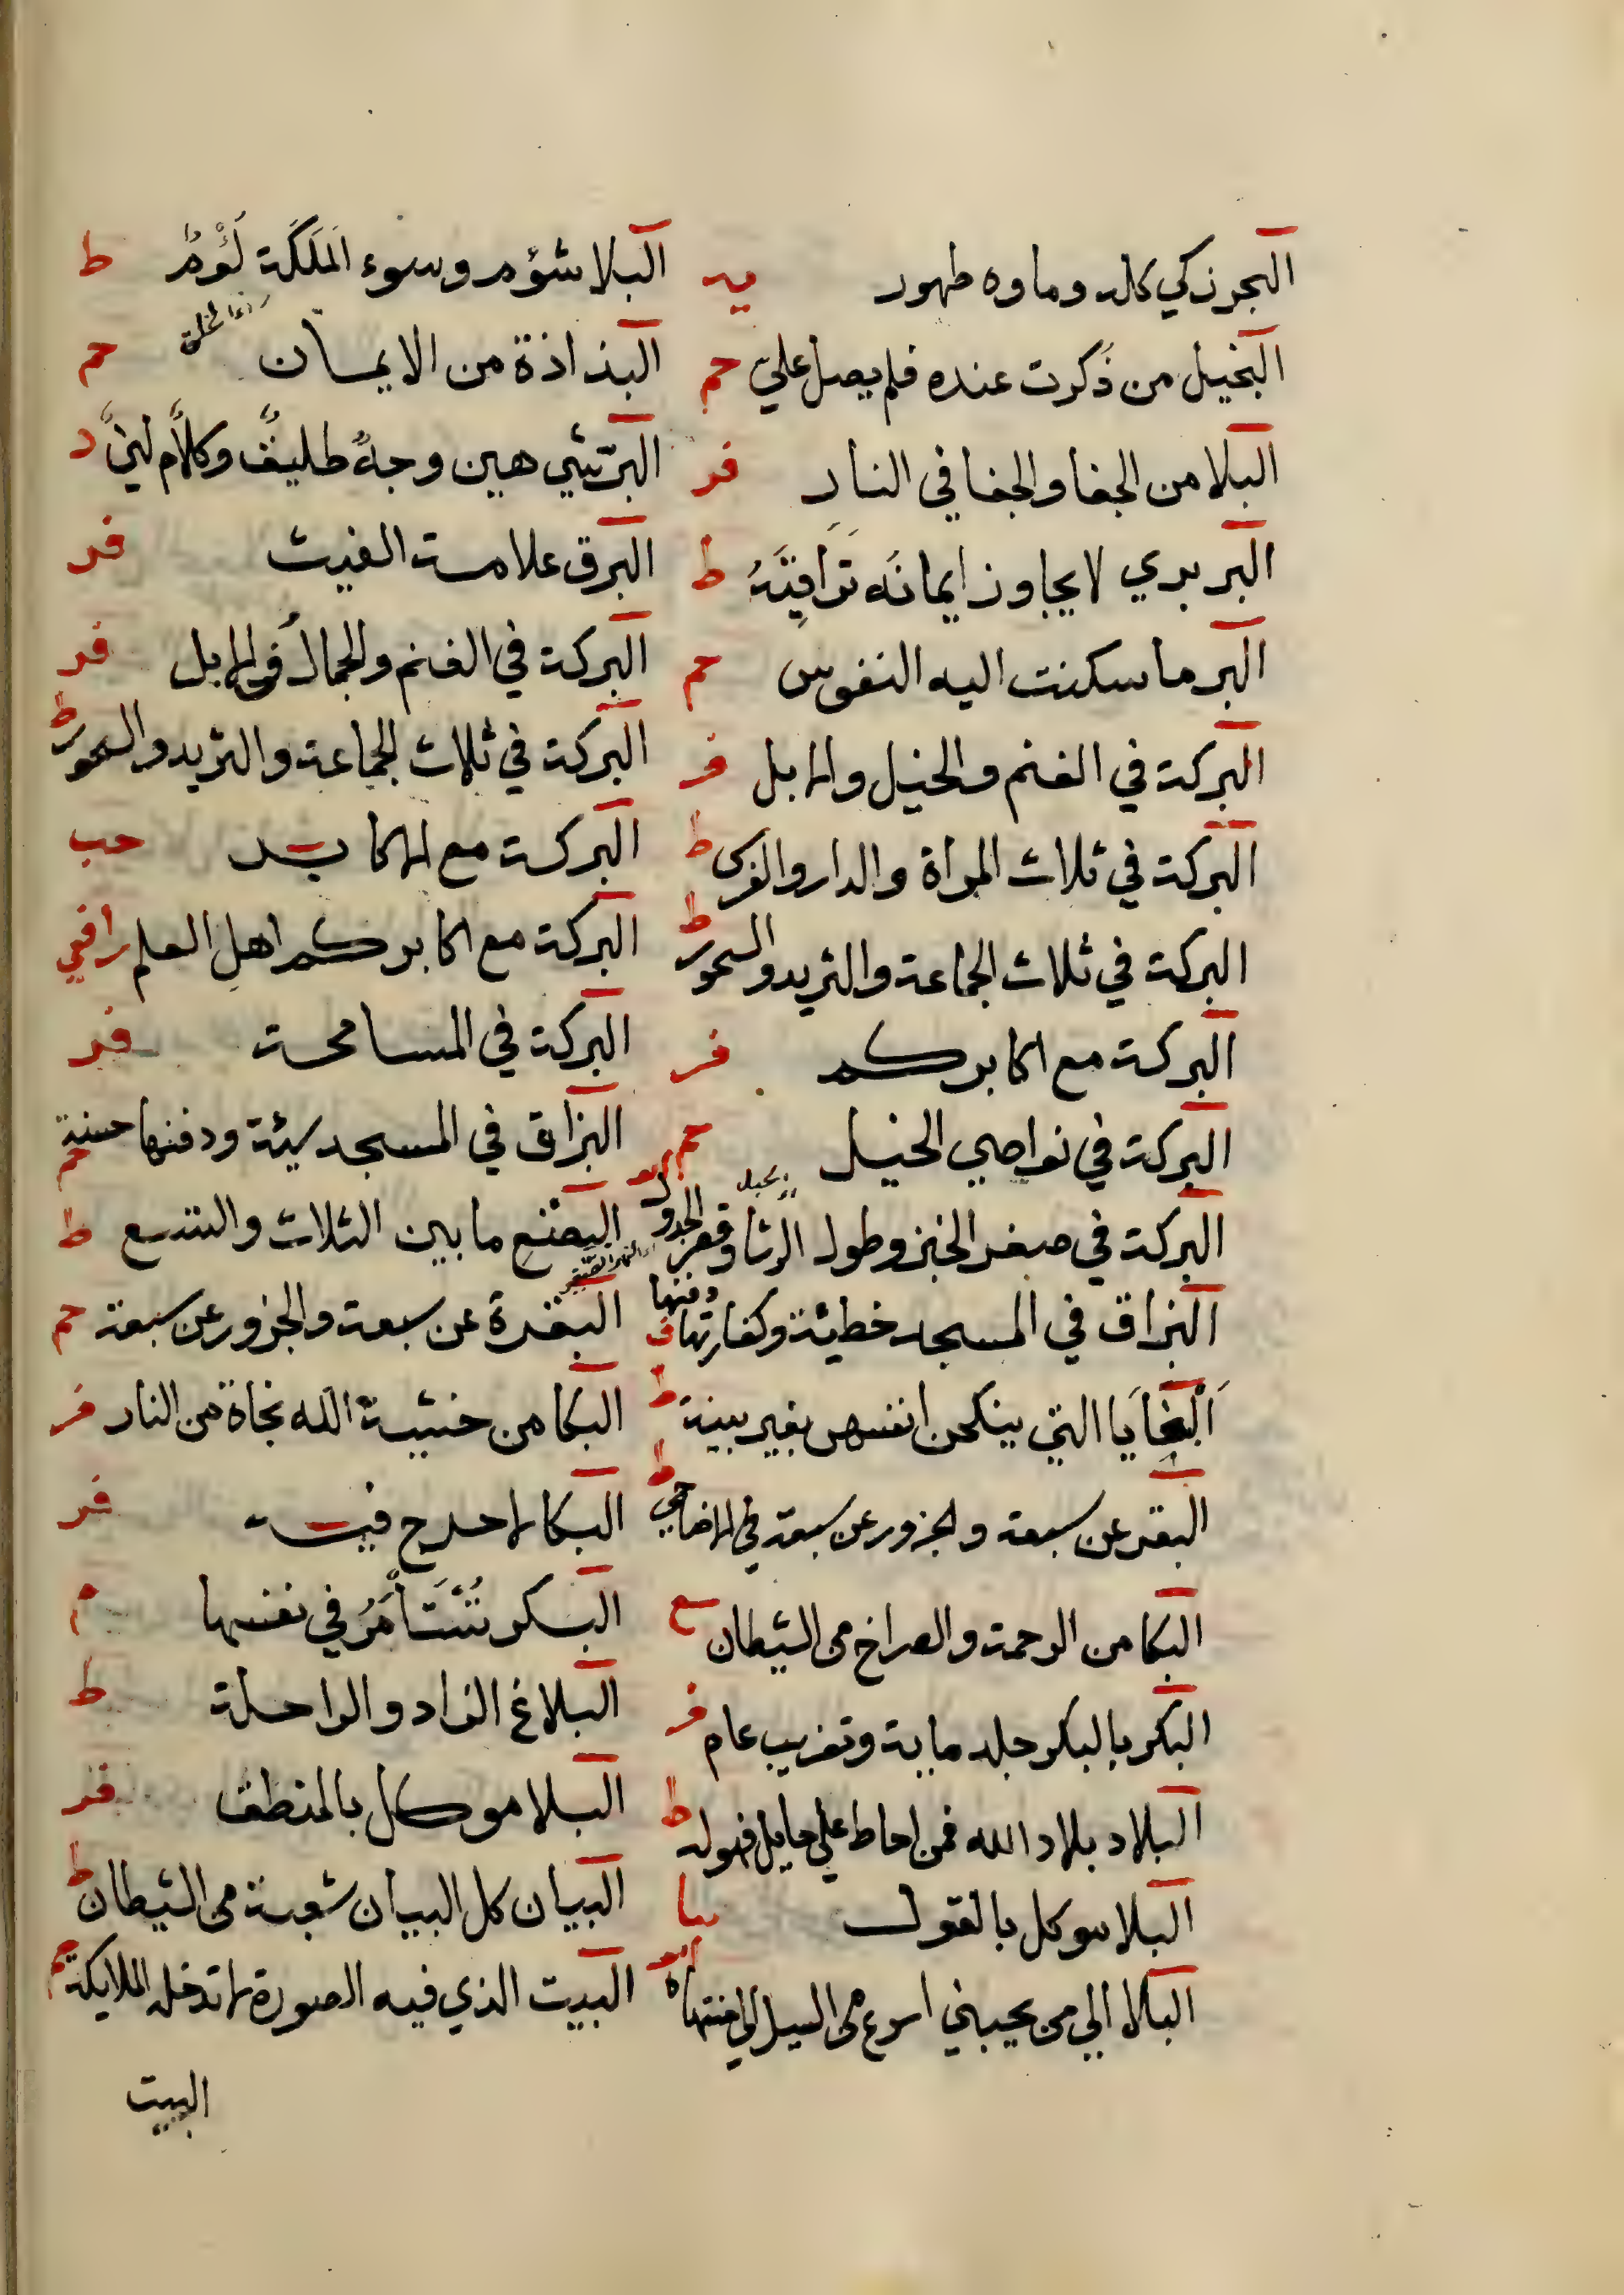 البحر زكي كله وماوه طهور يد
البخيل من ذُكرت عنده فلم يصل علي حم
البلا من الجفا والجفا في النار فر
البربري لا يجاوز ايمانه تَرَاقِيَهُ ط
البر ما سكنت اليه النفوس حم
البركة في الغنم والخيل والابل فر
البركة في ثلاث المراة والدار والفرس ط
البركة في ثلاث الجماعة والثريد والسحور ط
البركة مع اكابركم فر
البركة في نواصي الخيل حم
البركة في صغر الخبز وطول الرشا وقصر الجدول
البزاق في المسجد خطيئة وكفارتها دفنها ق
اَلْبَغَايَا التي ينكحن انفسهن بغير بينة ط
البقر عن سبعة والجزور عن سبعة في الاضاحي ط
البكا من الرحمة والصراخ من الشيطان سع
البكر بالبكر جلد ماية وتغريب عام فر
البلاد بلاد الله فمن احاط علي حايل فهو له ط
البلا موكل بالقول
البلا الي من يحبني اسرع من السيل الي منتهاه
البلا شؤم وسوء المَلَكَة لُؤْمٌ ط
البذاذة من الايمان حم
البر شي هين وجهٌ طليقٌ وكلامٌ لينٌ د
البرق علامة الغيث فر
البركة في الغنم والجمال في الابل فر
البركة في ثلاث الجماعة والثريد والسحور ط
البركة مع الاكابر حب
البركة مع اكابركم اهل العلم رافعي
البركة في المسامحة فر
البزاق في المسجد سيئة ودفنها حسنة حم
البضع ما بين الثلاث والتسع ط
البقرة عن سبعة والجزور عن سبعة حم
البكا من خشية الله نجاة من النار فر
البكا لا حرج فيه فر
البكر تُسْتَأْمَرُ في نفسها م
البلاغ الزاد والراحلة ط
البلا موكل بالمنطق فر
البيان كل البيان شعبة من الشيطان ط
البيت الذي فيه الصورة لا تدخله الملايكة حم
البيت